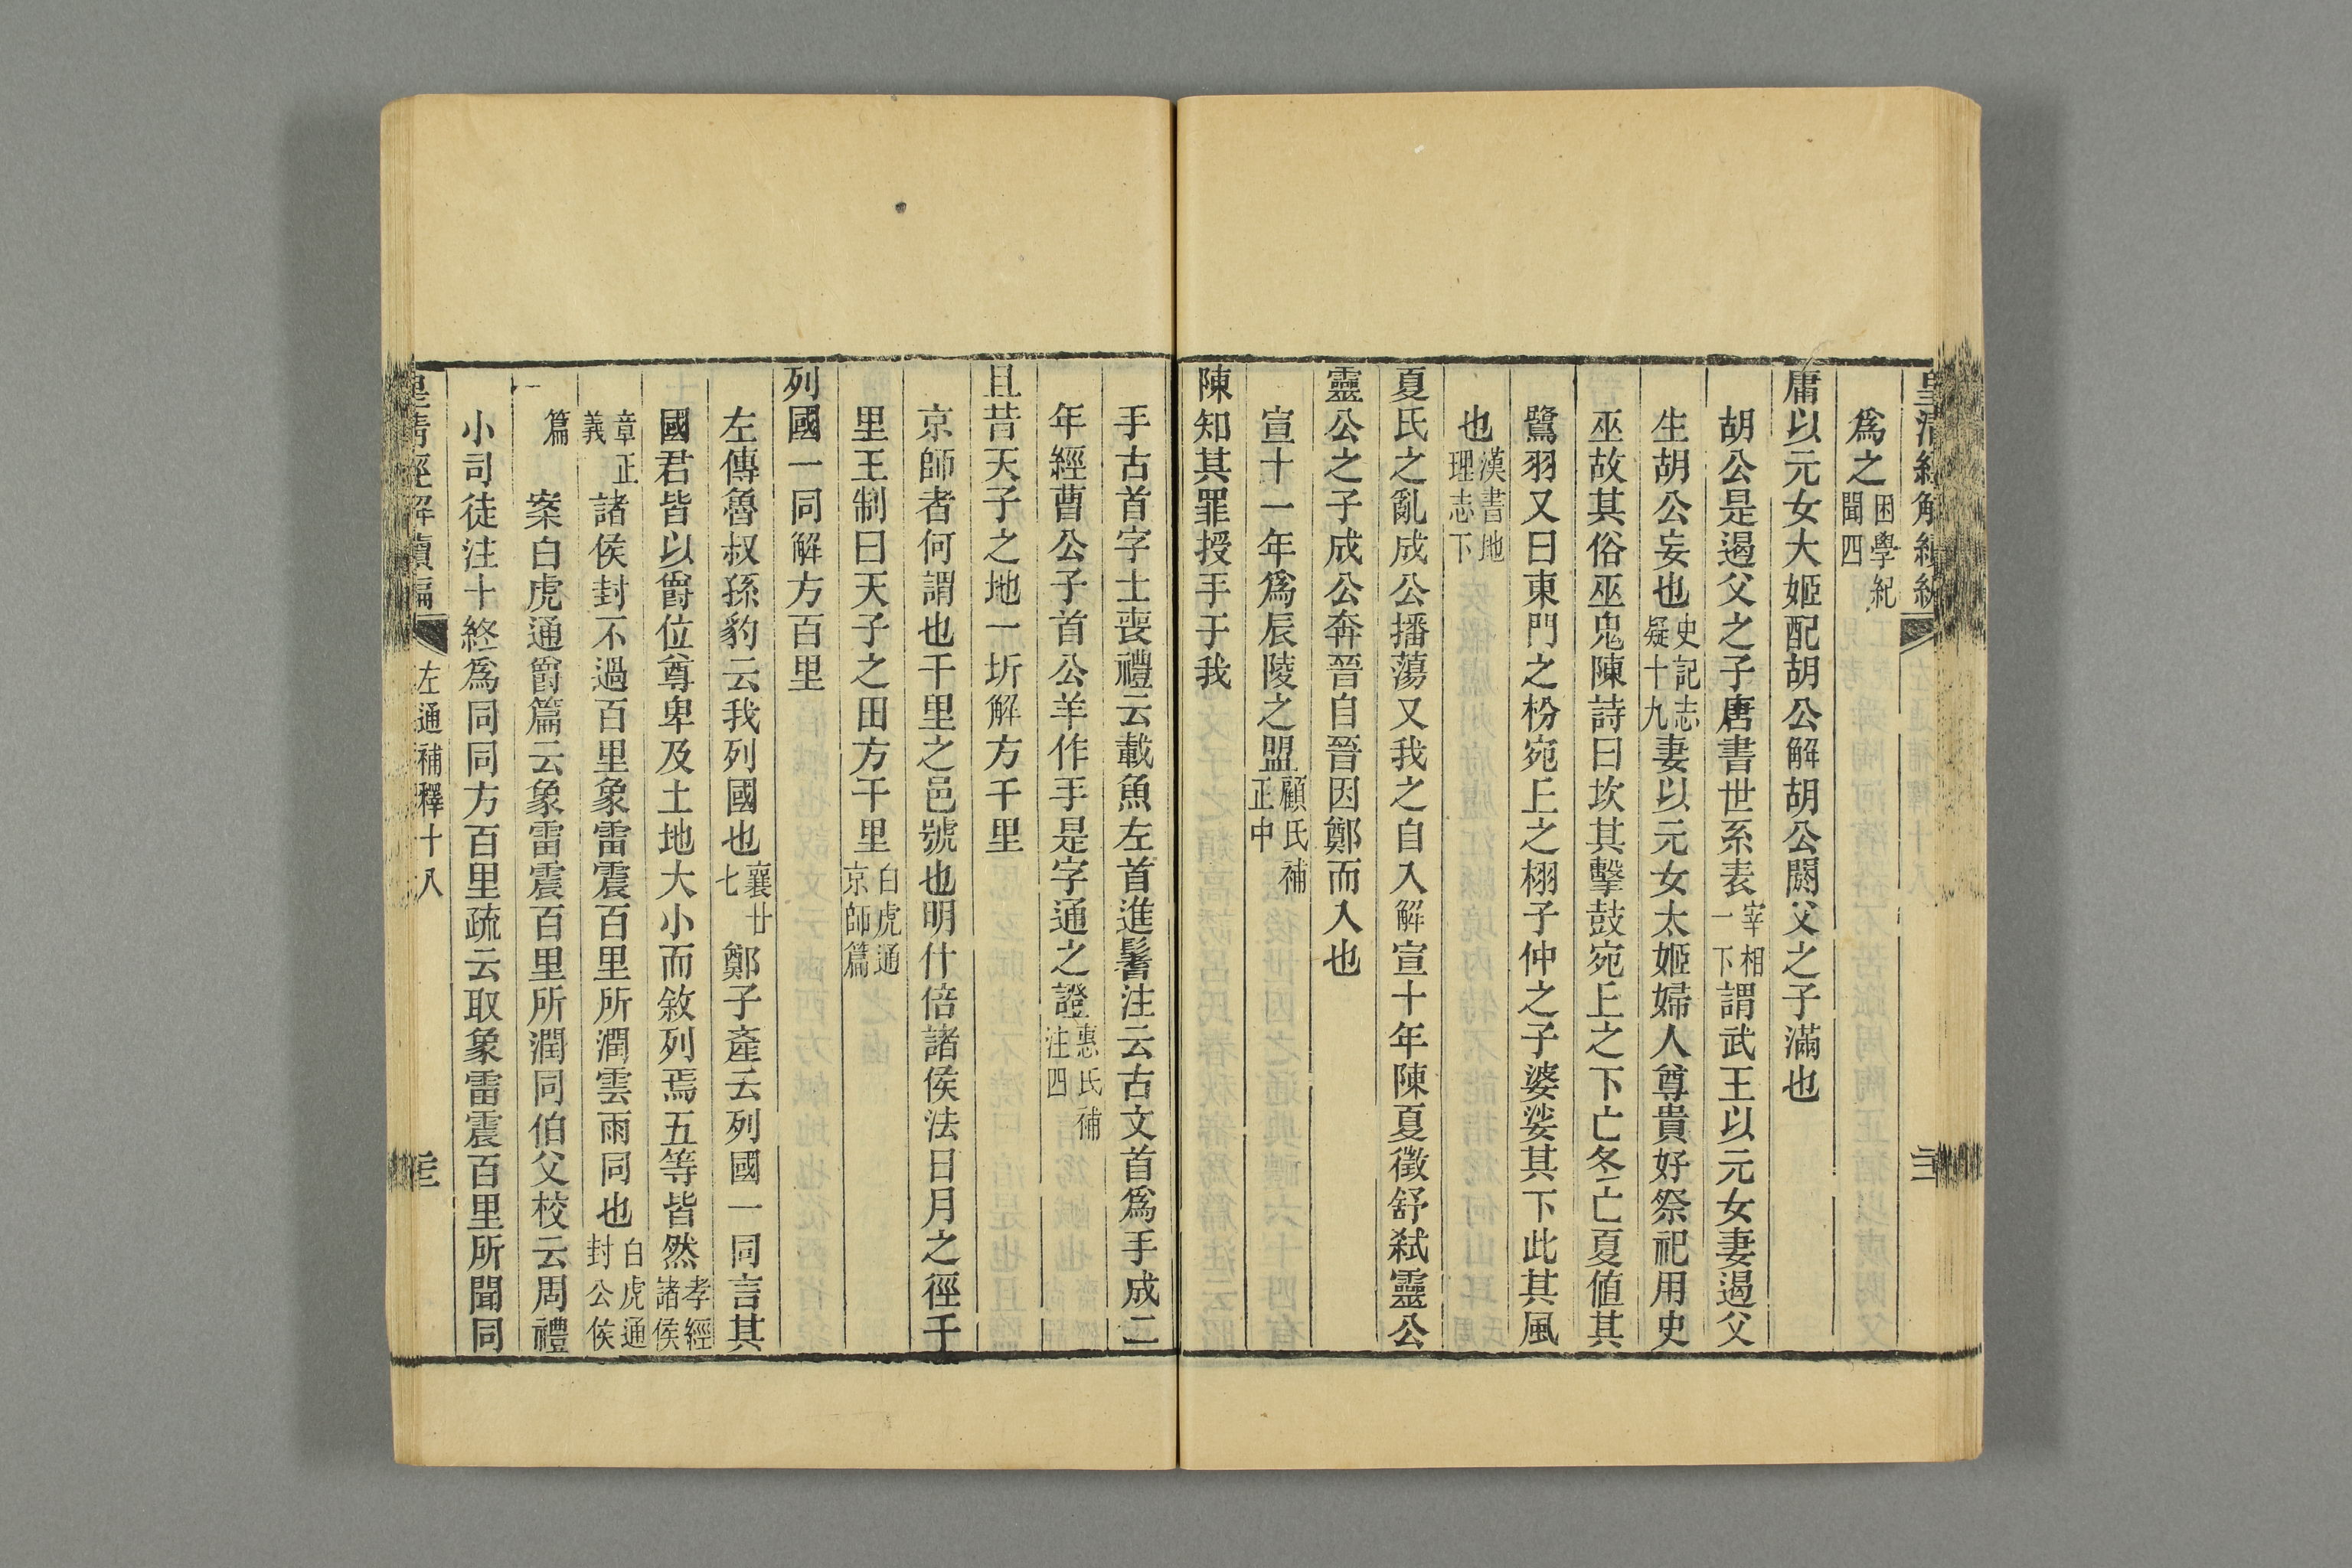 皇清經解續編
爲之困學紀聞四
庸以元女大姬配胡公解胡公閼父之子滿也
胡公是遏父之子唐書世系表宰相一下謂武王以元女妻遏父
生胡公妄也史記志疑十九妻以元女太姬婦人尊貴好祭祀用史
巫故其俗巫鬼陳詩曰坎其擊鼓宛丘之下亡冬亡夏值其
鷺羽又曰東門之枌宛丘之栩子仲之子婆娑其下此其風
也漢書地理志下
夏氏之亂成公播蕩又我之自入解宣十年陳夏徵舒弒靈公
靈公之子成公奔晉自晉因鄭而入也
宣十一年爲辰陵之盟顧氏補正中
陳知其罪授手于我
手古首字士喪禮云載魚左首進鬐注云古文首爲手成二
年經曹公子首公羊作手是字通之證惠氏補注四
且昔天子之地一圻解方千里
京師者何謂也千里之邑號也明什倍諸侯法日月之徑千
里王制曰天子之田方千里白虎通京師篇
列國一同解方百里
左傳魯叔孫豹云我列國也襄廿七鄭子產云列國一同言其
國君皆以爵位尊卑及土地大小而敘列焉五等皆然孝經諸侯
章正義諸侯封不過百里象雷震百里所潤雲雨同也白虎通封公侯
篇案白虎通爵篇云象雷震百里所潤同伯父校云周禮
小司徒注十終爲同同方百里疏云取象雷震百里所聞同
皇清經解續編 左通補釋十八